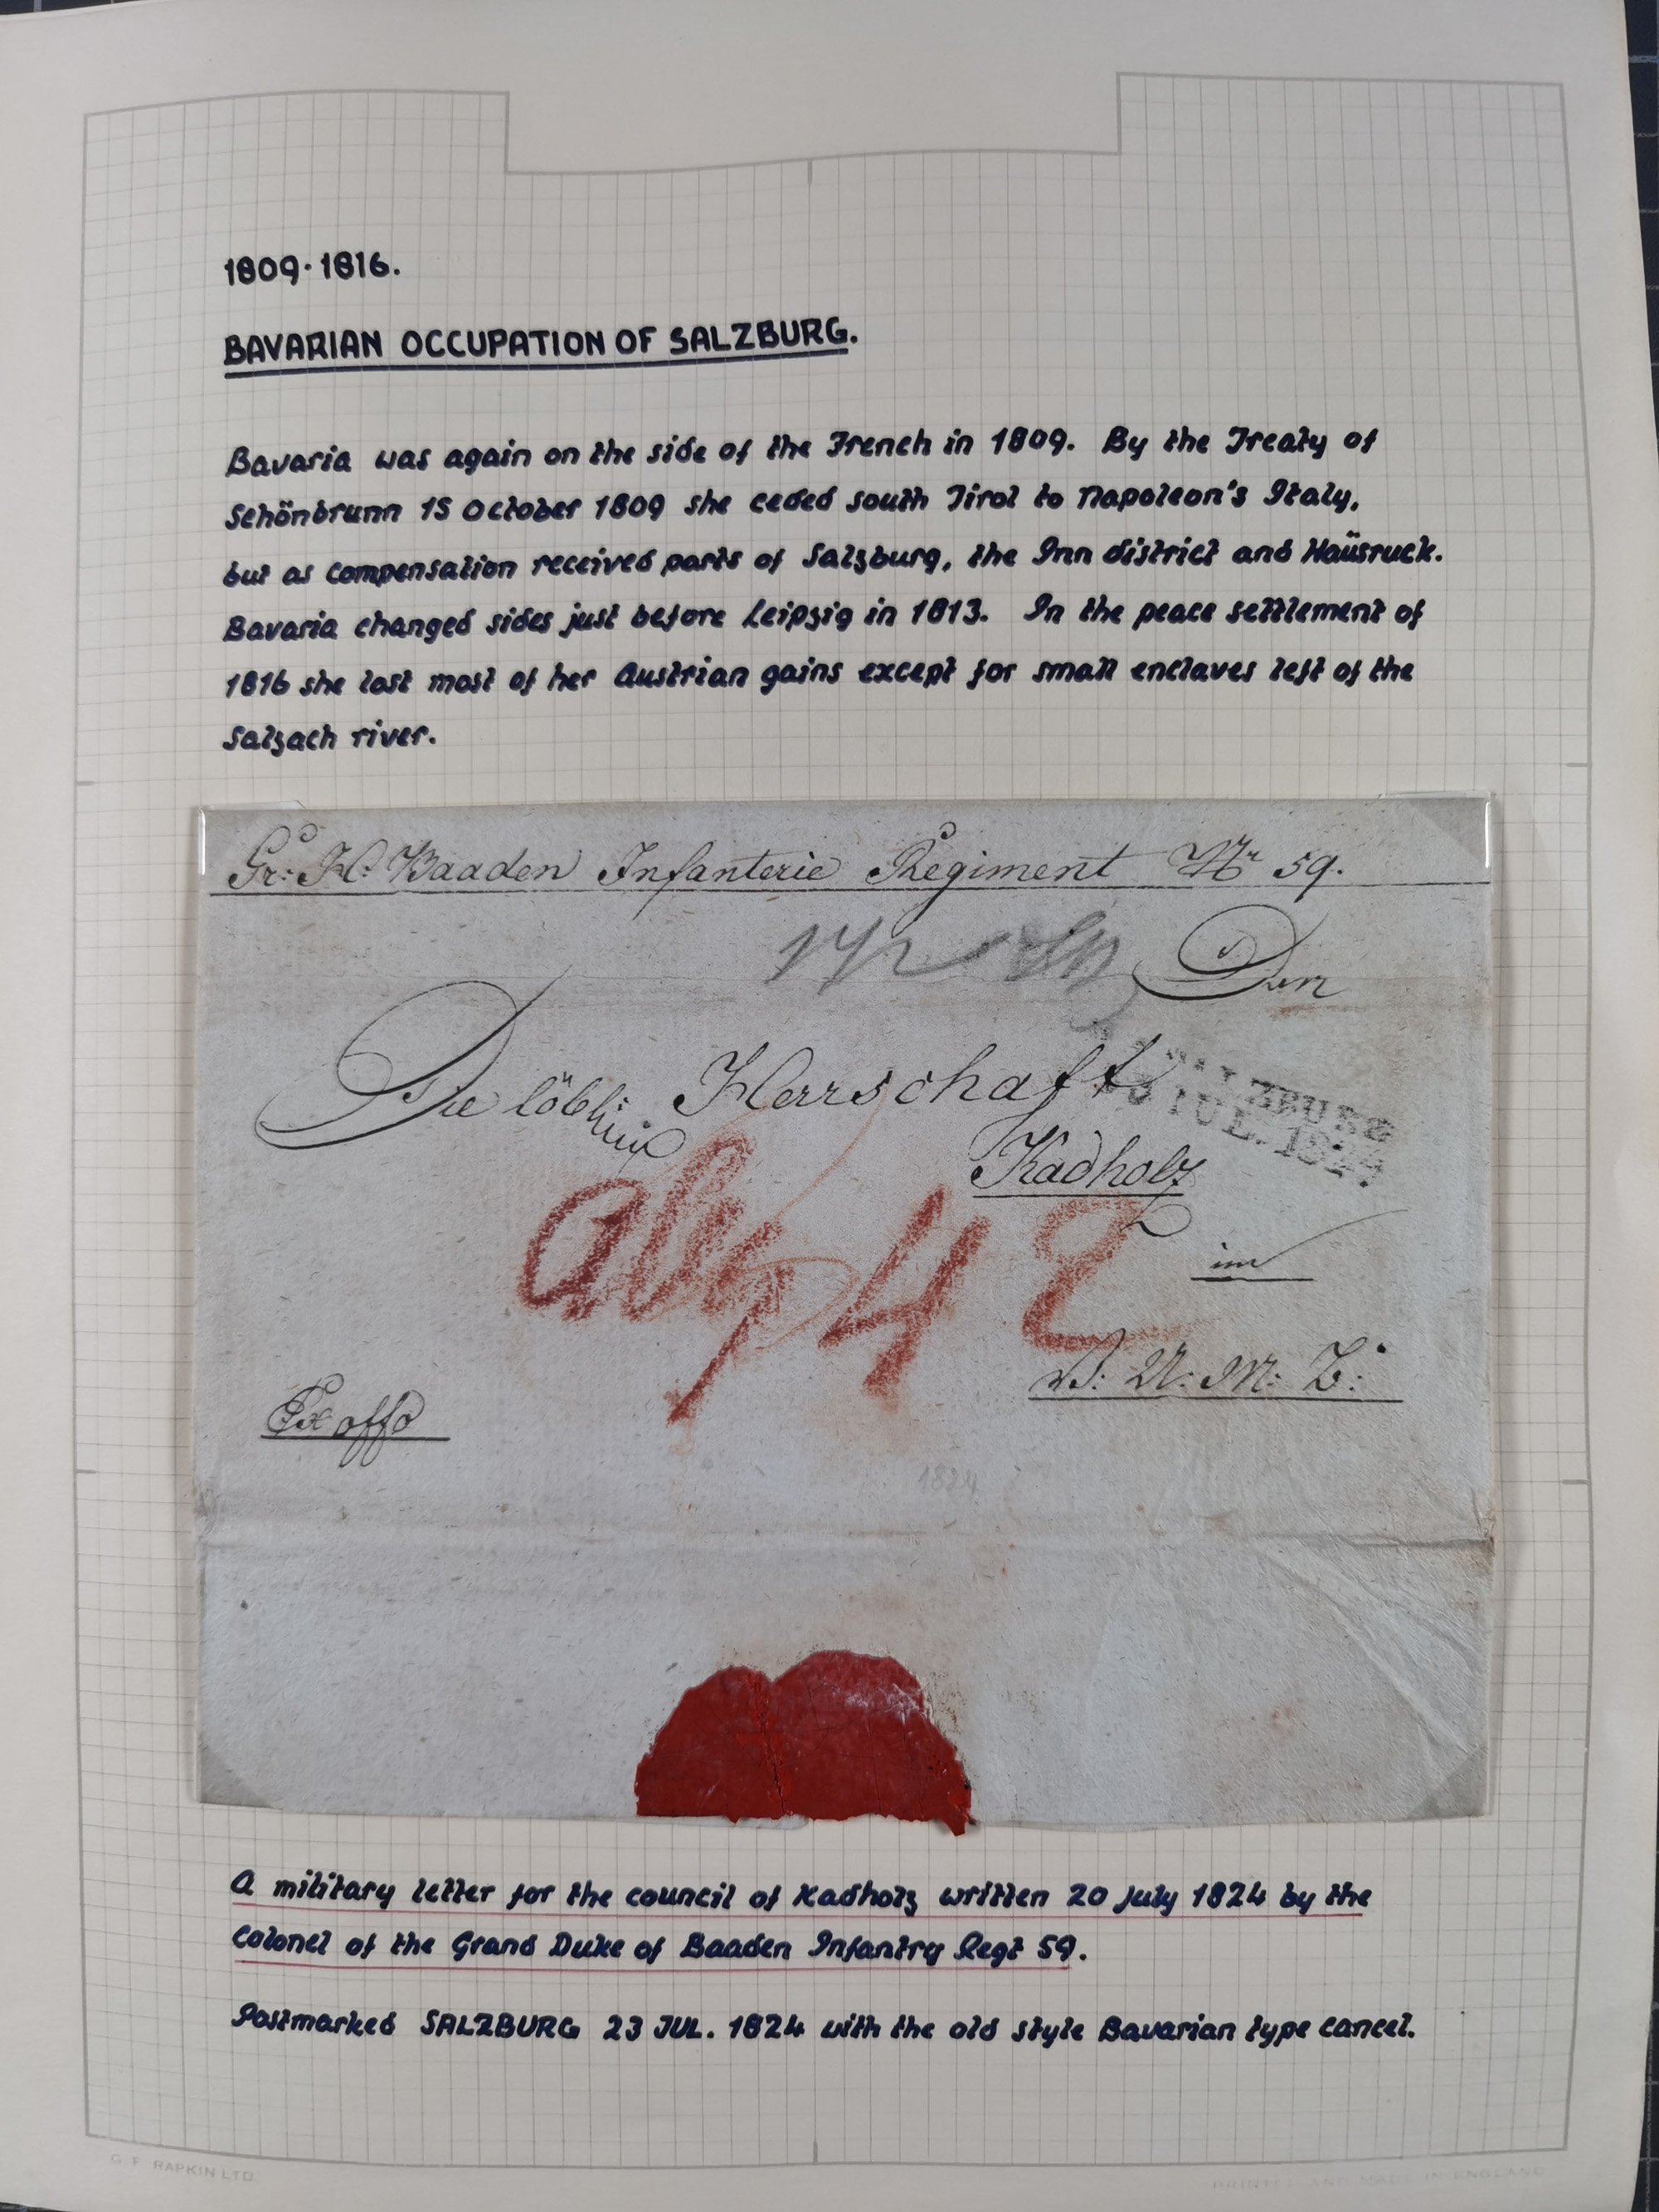 1809·1816.
BAVARIAN OCCUPATION OF SALZBURG.
Bavaria was again on the side of the French in 1809. By the Treaty of
Schönbrunn 15 October 1809 she ceded south Tirol to Napoleon's Italy,
but as compensation received parts of Salzburg, the Inn district and Haüsruck.
Bavaria changed sides just before Leipzig in 1813. In the peace settlement of
1816 she lost most of her Austrian gains except for small enclaves left of the
Salzach river.
Gr: H: Baaden Infanterie Regiment Nr 59.
Die löbl: Herrschaft
SALZBURG
JUL. 1824
Kadholz
im
V: U: M: B:
Ex offo
1824
A military letter for the council of Kadholz written 20 July 1824 by the
Colonel of the Grand Duke of Baaden Infantry Regt 59.
Postmarked SALZBURG 23 JUL. 1824 with the old style Bavarian type cancel.
G. F. RAPKIN LTD.
PRINTED AND MADE IN ENGLAND